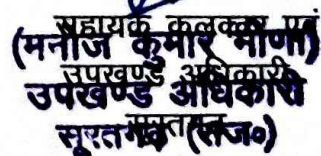 सहायक कलक्टर एवं
(मनोज कुमार मीणा)
उपखण्ड अधिकारी
उपखण्ड अधिकारी
सूरतगढ़ (राज०)